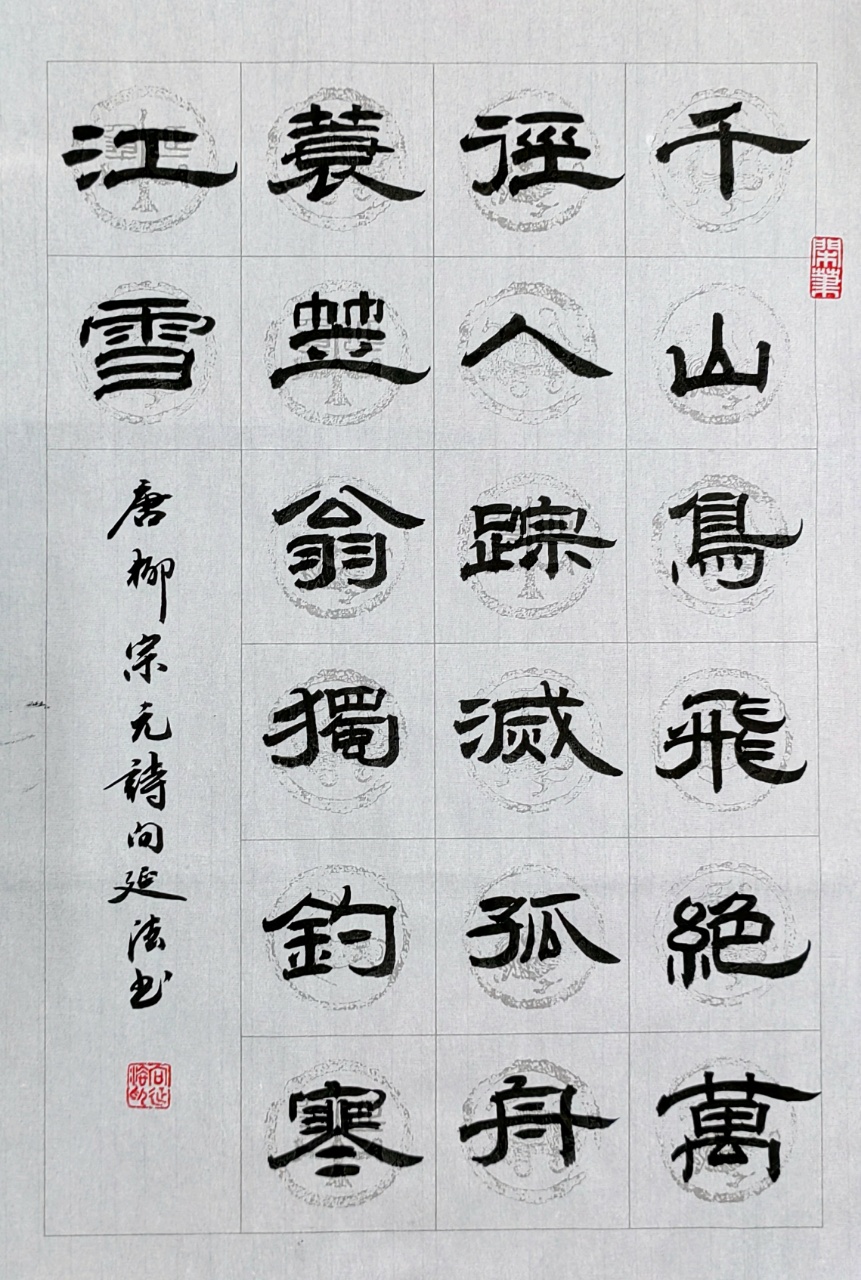 千山鳥飛絕萬
徑人踪滅孤舟
蓑笠翁獨釣寒
江雪
唐柳宗元詩向延法书
閑筆